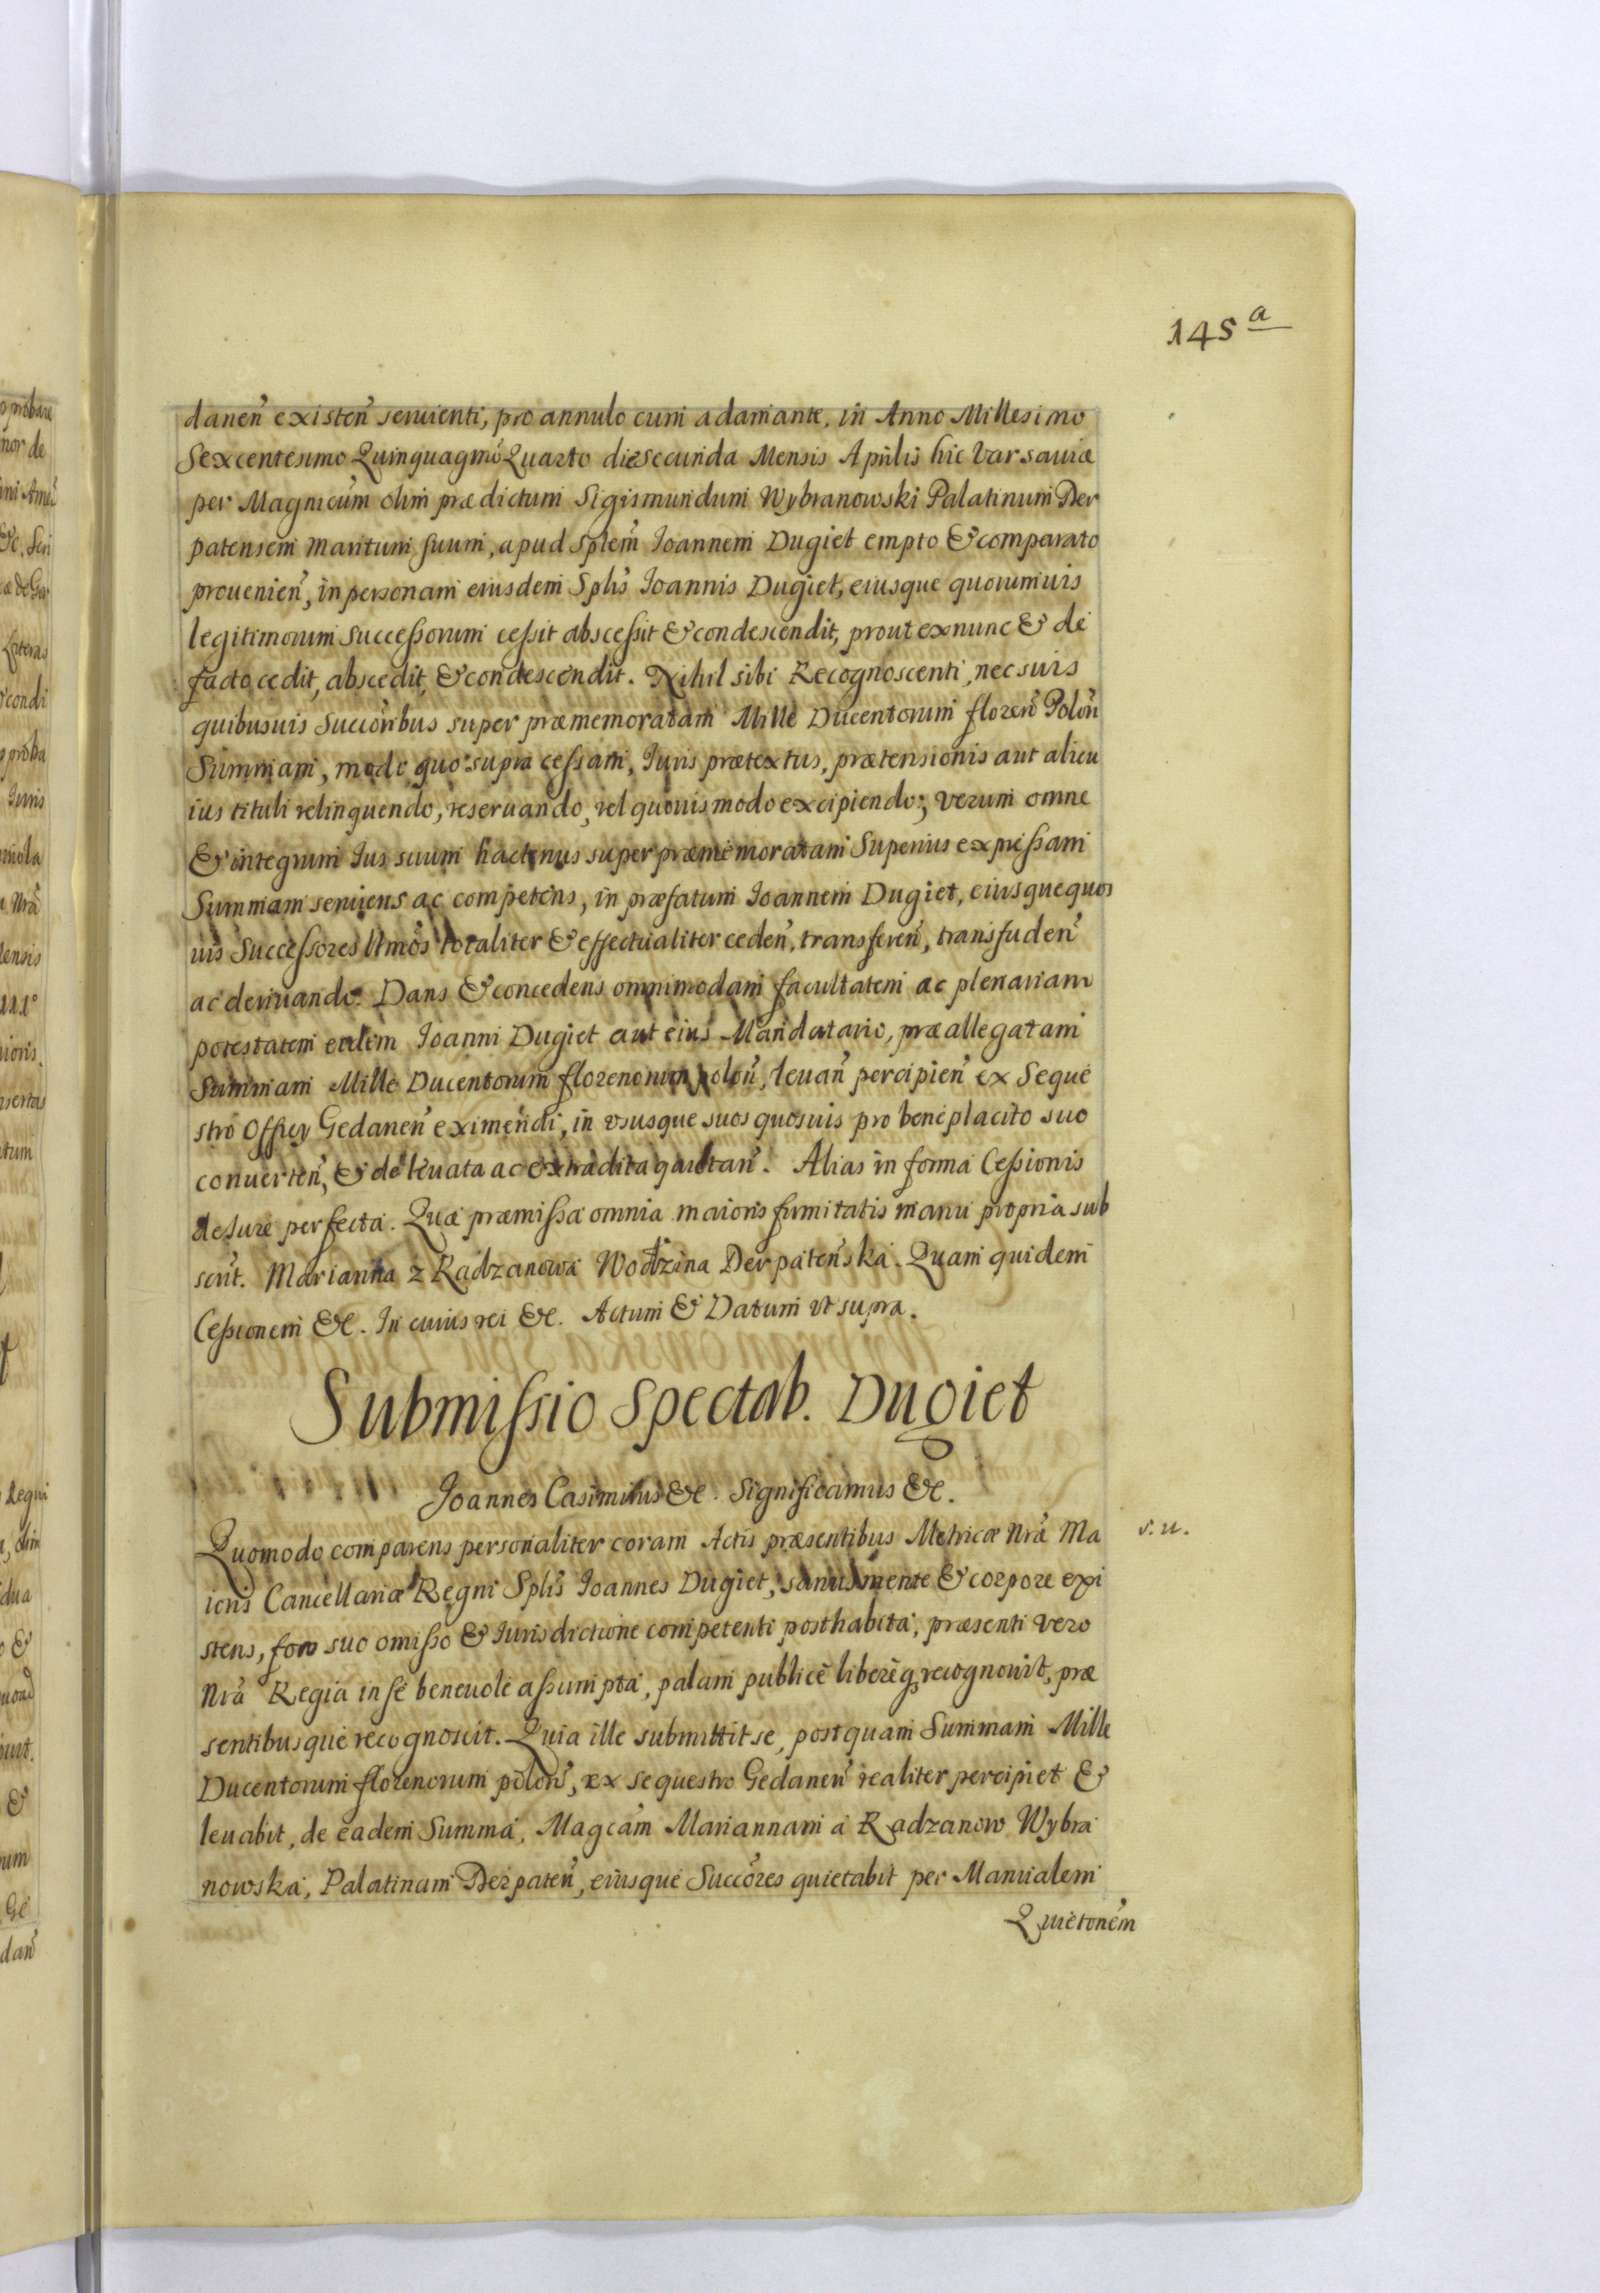 145 a
danen̄ existen̄ seruienti, pro annulo cum adamante, in Anno Millesimo
Sexcentesimo Quinquagmo Quarto die secunda Mensis Aprilis hic Varsauiæ
per Magnicum olim prædictum Sigismundum Wybranowski Palatinum Der
patensem Maritum suum, apud Splem̄ Joannem Dugiet empto & comparato
prouenien̄, in personam eiusdem Splis̄ Joannis Dugiet, eiusque quorumuis
legitimorum Successorum cessit abscessit & condescendit, prout exnunc & de
facto cedit, abscedit, & condescendit. Nihil sibi Recognoscenti, nec suis
quibusuis Succoribus super præmemoratam Mille Ducentorum floren̄ Polon̄
Summam, modo quo supra cessam, Juris prætextus, prætensionis aut alicu
ius tituli relinquendo, reseruando, vel quouis modo excipiendo; verum omne
& integrum Jus suum hactenus super præmemoratam Superius expressam
Summam seruiens ac competens, in præfatum Joannem Dugiet, eiusque quos
uis Successores ltmōs totaliter & effectualiter ceden̄, transferen̄, transfuden̄
ac deriuando. Dans & concedens omnimodam facultatem ac plenariam
potestatem eidem Joanni Dugiet aut eius Mandatario, præallegatam
Summam Mille Ducentorum florenorum polon̄, leuan̄ percipien̄ ex Seque
stro Officy Gedanen̄ eximendi, in vsusque suos quosuis pro beneplacito suo
conuerten̄, & de leuata ac extradita quietan̄. Alias in forma Cessionis
de Jure perfecta. Quæ præmissa omnia maioris firmitatis manu propria sub
scrit̄. Marianna z Radzanowa Wodzina Derpaten̄ska. Quam quidem
Cessionem &c. In cuius rei &c. Actum & Datum vt supra.
Submissio Spectab. Dugiet
Joannes Casimirus &c. Significamus &c.
Quomodo comparens personaliter coram Actis præsentibus Metricæ Nrǣ Ma
s. u.
ioris Cancellariæ Regni Splis̄ Joannes Dugiet, sanus mente & corpore exi
stens, foro suo omisso & Jurisdictione competenti posthabita, præsenti vero
Nrā Regia in se beneuole assumpta, palam publice libereq, recognouit, præ
sentibusque recognoscit. Quia ille submittit se, postquam Summam Mille
Ducentorum florenorum polon̄, ex sequestro Gedanen̄ realiter percipiet &
leuabit, de eadem Summa, Magcam̄ Mariannam a Radzanow Wybra
nowska, Palatinam Derpaten̄, eiusque Succores̄ quietabit per Manualem
Quietonem̄